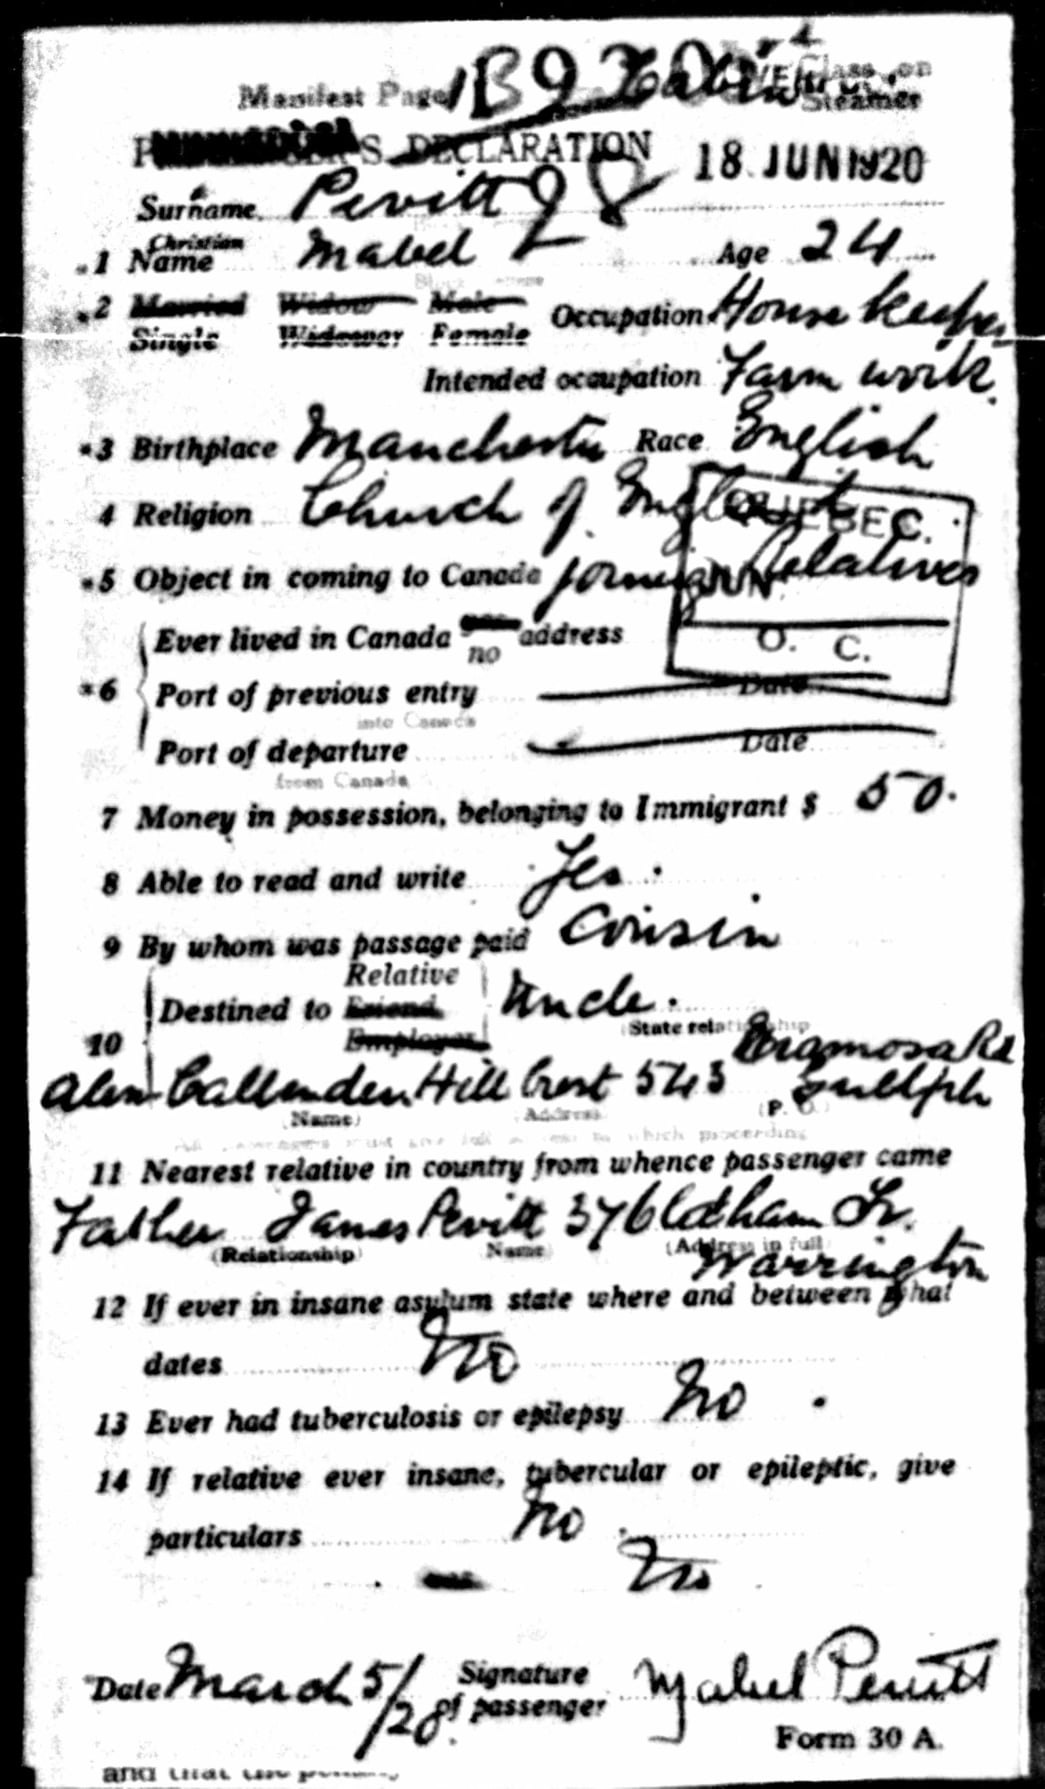 Manifest Page 1 B920 Cabin Class on
Steamer
S DECLARATION 18 JUN 1920
Surname Pevitt
1 Christian Name Mabel Age 24
2 Married Widow Male Occupation House keeper
Single Widower Female
Intended occupation Farm work.
3 Birthplace Manchester Race English
4 Religion Church of England
QUEBEC.
5 Object in coming to Canada joining Relatives
JUN
Ever lived in Canada no address
O. C.
6 Port of previous entry Date
into Canada
Port of departure Date
from Canada
7 Money in possession, belonging to Immigrant $ 50.
8 Able to read and write Yes.
9 By whom was passage paid Cousin
Relative
10 Destined to Friend Uncle.
Employer State relationship
Eramosa Rd
Callender Hill Crest 543 Guelph
(Name) Address (P. O.
11 Nearest relative in country from whence passenger came
Father James Pevitt 376 Oldham St.
(Relationship) Name (Address in full)
Warrington
12 If ever in insane asylum state where and between what
dates No
13 Ever had tuberculosis or epilepsy No.
14 If relative ever insane, tubercular or epileptic, give
particulars No.
No
Date March 5/20. Signature of passenger Mabel Pevitt
Form 30 A.